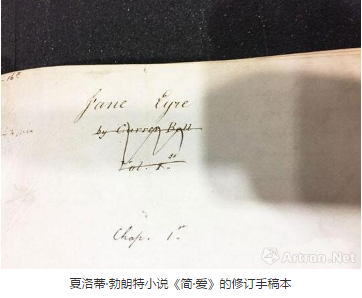 16th
Jane Eyre
by Currer Bell
Vol. 1st
Chap. 1st
Artron.Net
夏洛蒂·勃朗特小说《简·爱》的修订手稿本